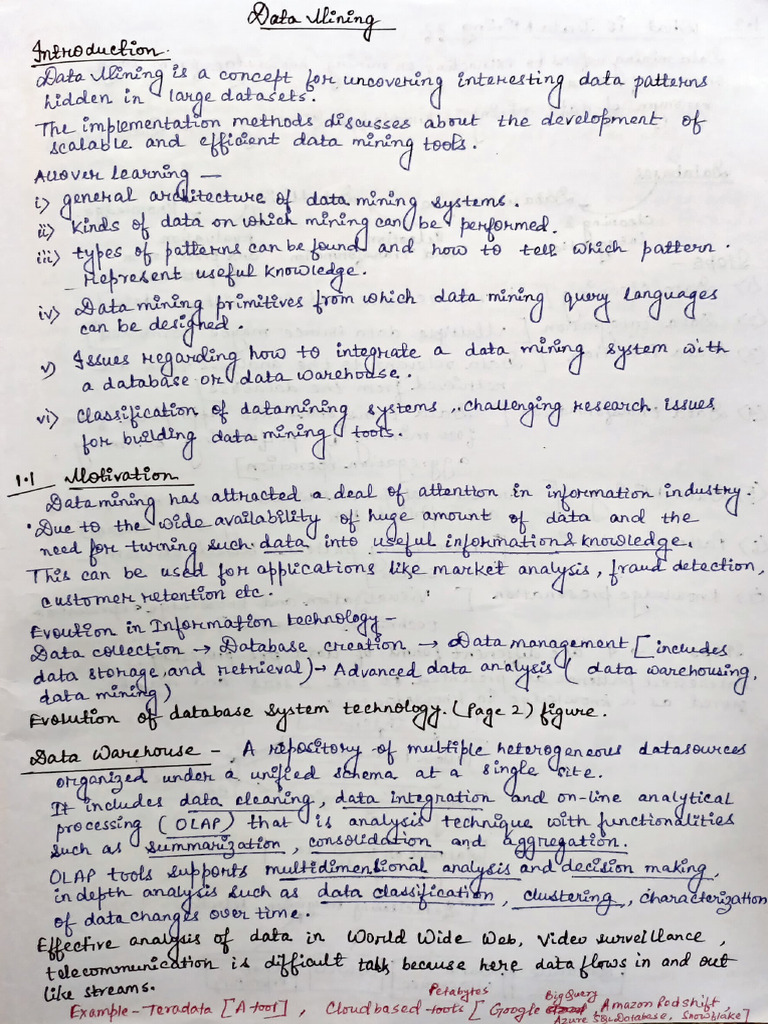 Data Mining
Introduction.
Data Mining is a concept for uncovering interesting data patterns
hidden in large datasets.
The implementation methods discusses about the development of
scalable and efficient data mining tools.
Allover Learning —
i) general architecture of data mining systems.
ii) kinds of data on which mining can be performed.
iii) types of patterns can be found and how to tell which pattern.
represent useful knowledge.
iv) Data mining primitives from which data mining query languages
can be designed.
v) Issues regarding how to integrate a data mining system with
a database or data warehouse.
vi) Classification of datamining systems, challenging research issues
for building data mining tools.
1.1 Motivation
Data mining has attracted a deal of attention in information industry.
Due to the wide availability of huge amount of data and the
need for turning such data into useful information & knowledge.
This can be used for applications like market analysis, fraud detection,
customer retention etc.
Evoution in Information technology -
Data collection → Database creation → Data management [includes
data storage, and retrieval) → Advanced data analysis (data warehousing,
data mining)
Evolution of database system technology. (Page 2) figure.
Data Warehouse - A repository of multiple heterogeneous datasources
organized under a unified schema at a single cite.
It includes data cleaning, data integration and on-line analytical
processing (OLAP) that is analysis technique with functionalities
such as summarization, consolidation and aggregation.
OLAP tools supports multidimensional analysis and decision making,
indepth analysis such as data classification, clustering, characterization
of data changes over time.
Effective analysis of data in World Wide Web, video surveillance,
telecommunication is difficult because here data flows in and out
like streams.
Petabytes BigQuery
Example - Teradata [A tool], Cloud based tools [Google Amazon Redshift,
Azure SQL Database, Snowflake]